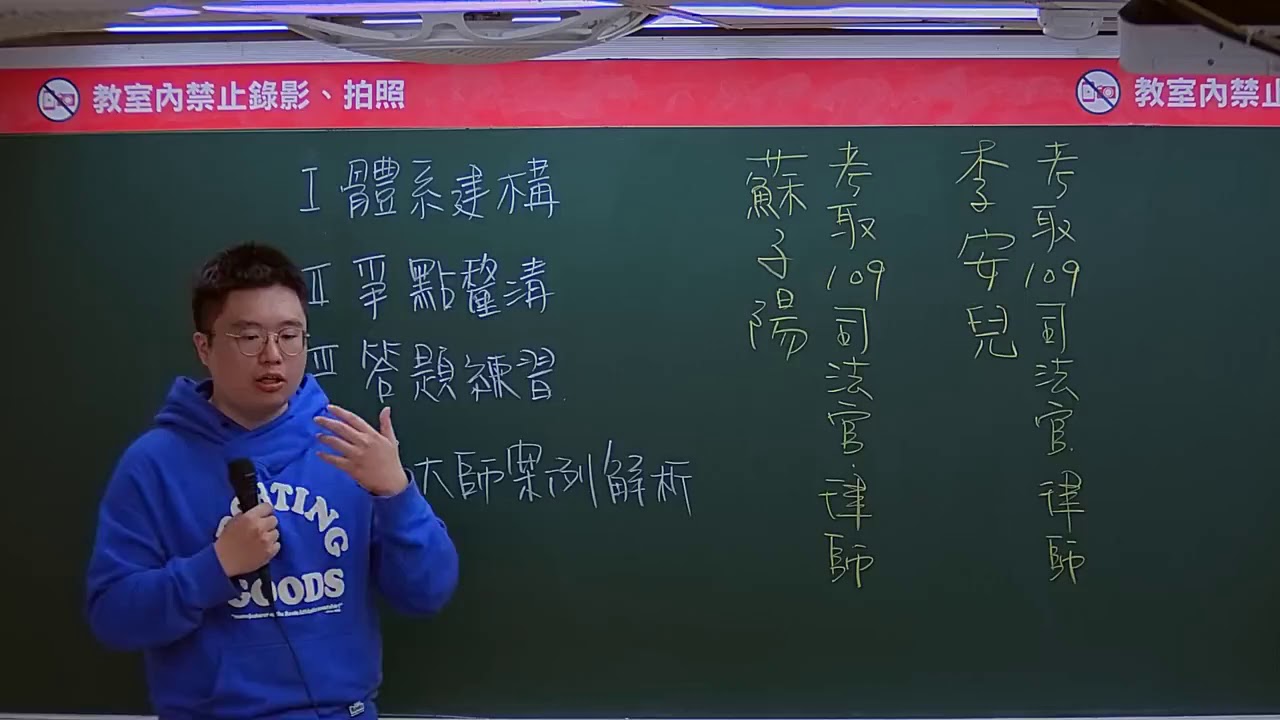 教室內禁止錄影、拍照
教室內禁止
I 體系建構
II 爭點釐清
III 答題練習
大師案例解析
考取109司法官.律師
李安兒
考取109司法官.律師
蘇子陽
ATING
GOODS